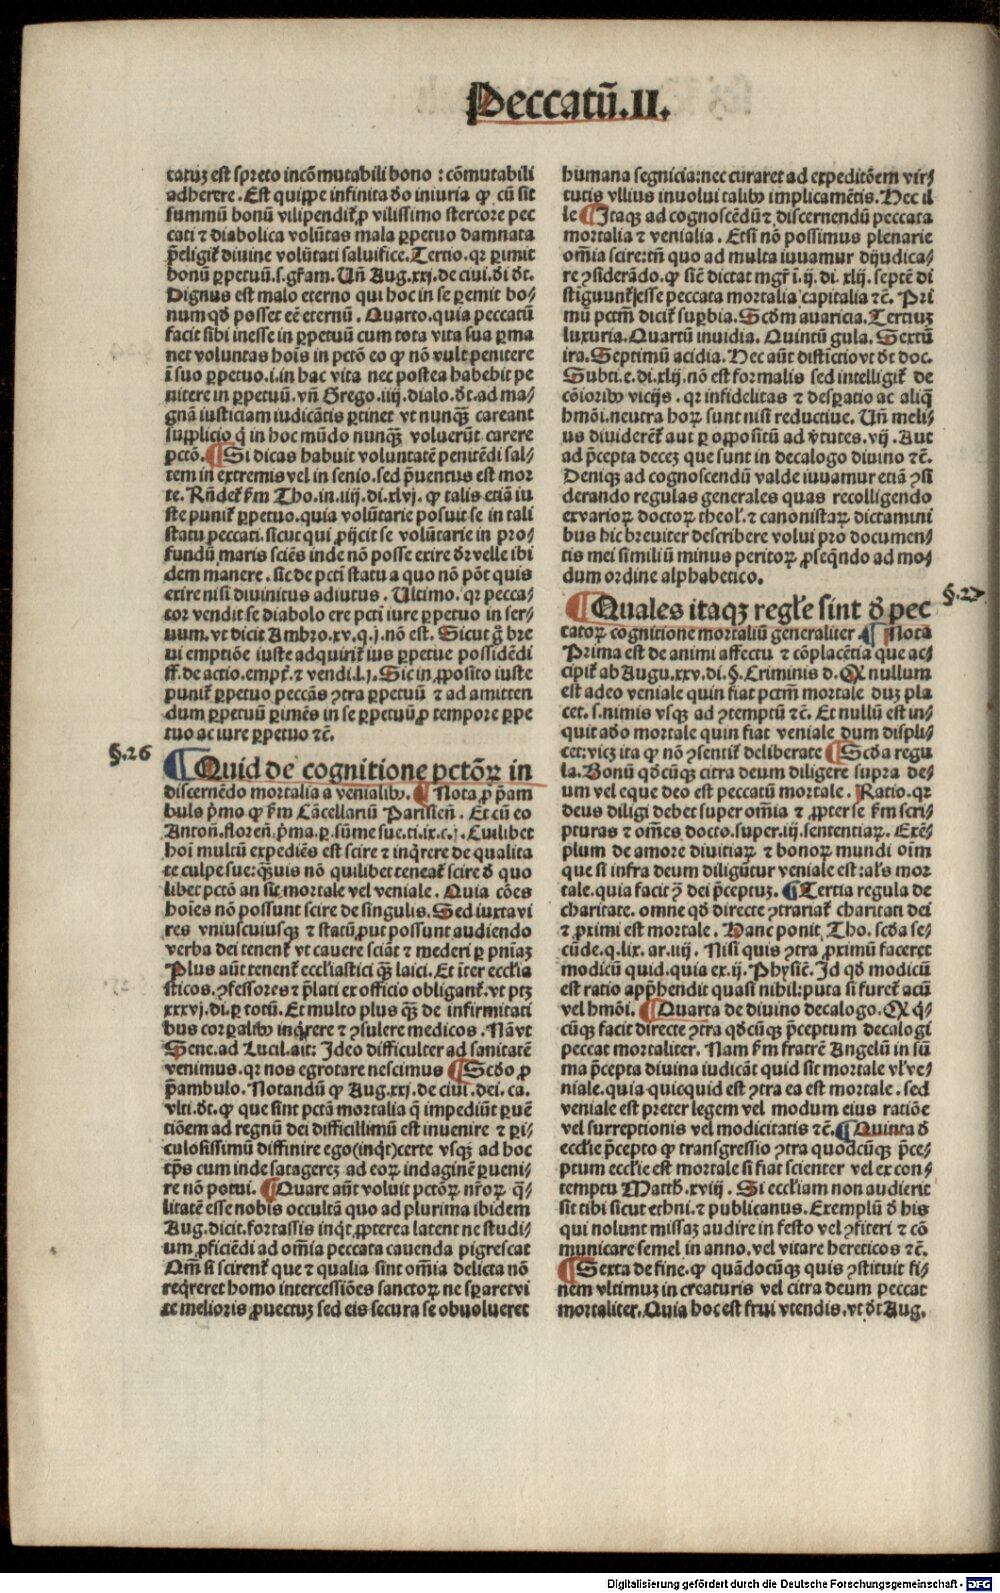 Peccatū.II.
catuȝ est spreto incōmutabili bono : cōmutabili
adherere. Est quippe infinita dō iniuria ꝙ cū sit
summū bonū vilipendit̄ ꝓ vilissimo stercore pec
cati ⁊ diabolica volūtas mala ꝑpetuo damnata
p̄eligit̄ diuine volūtati saluifice. Tertio. qꝛ ꝑimit
bonū ꝑpetuū.s.gr̄am. Un̄ Aug.xxj.de ciui.di dt̄.
Dignus est malo eterno qui hoc in se ꝑemit bo⸗
num qd̄ posset eē eternū. Quarto.quia peccatū
facit sibi inesse in ꝑpetuū cum tota vita sua ꝑma
net voluntas hoīs in pctō eo ꝙ nō vult penitere
ī suo ꝑpetuo.i.in hac vita nec postea habebit pe
nitere in ꝑpetuū. vn̄ Grego.iiij.dialo.dt̄.ad ma⸗
gnā iusticiam iudicātis ꝑtinet vt nunqȝ̄ careant
supplicio q̇ in hoc mūdo nunqȝ̄ voluerūt carere
pctō. ¶ Si dicas habuit voluntatē penitēdi sal⸗
tem in extremis vel in senio.sed p̄uentus est mor
te. Rn̄det̄ fm̄ Tho.in.iiij.di.xlvj. ꝙ talis etiā iu
ste punit̄ ꝑpetuo.quia volūtarie posuit se in tali
statu peccati.sicut qui ꝓijcit se volūtarie in pro⸗
fundū maris sciēs inde nō posse exire dr̄ velle ibi
dem manere. sic de pcti statu a quo nō pōt quis
exire nisi diuinitus adiutus. Ultimo. qꝛ pecca⸗
tor vendit se diabolo ere pcti iure ꝑpetuo in ser⸗
uum. vt dicit Ambro.xv.q.j.nō est. Sicut g̊ bre
ui emptiōe iuste adquirit̄ ius ꝑpetue possidēdi
ff.de actio.empt̄.⁊ vendi.l.j. Sic in ꝓposito iuste
punit̄ ꝑpetuo peccās ꝯtra ꝑpetuū ⁊ ad amitten
dum ꝑpetuū ꝑimēs in se ꝑpetuū ꝓ tempore ꝑpe
tuo ac iure ꝑpetuo ⁊c̄.
§.26
¶ Quid de cognitione pctōꝝ in
discernēdo mortalia a venialibꝰ. ¶ Nota ꝓ p̄am
bulo p̄mo ꝙ fm̄ Cācellariū Parisien̄. Et cū eo
Anton̄.floren̄.p̄ma.ꝑ.sūme sue.ti.ix.c.j. Cuilibet
hoī multū expediēs est scire ⁊ inq̇rere de qualita
te culpe sue:qȝ̄uis nō quilibet teneat̄ scire d̄ quo
libet pctō an sit mortale vel veniale. Quia cōes
hoīes nō possunt scire de singulis. Sed iuxta vi
res vniuscuiusqȝ ⁊ statū ꝓut possunt audiendo
verba dei tenent̄ vt cauere sciāt ⁊ mederi ꝑ pn̄iaȝ
Plus aūt tenent̄ eccl̄iastici qȝ̄ laici. Et īter eccl̄ia
sticos.ꝯfessores ⁊ p̄lati ex officio obligant̄.vt ptȝ
xxxvj.di.ꝑ totū. Et multo plus qȝ̄ de infirmitati
bus corꝑalibꝰ inq̇rere ⁊ ꝯsulere medicos. Nā vt
Sene.ad Lucil.ait: Ideo difficulter ad sanitatē
venimus.qꝛ nos egrotare nescimus ¶ Scd̄o ꝓ
p̄ambulo. Notandū ꝙ Aug.xxj.de ciui.dei.ca.
vlti.dt̄.ꝙ que sint pctā mortalia q̄ impediūt ꝑuē
tiōem ad regnū dei difficillimū est inuenire ⁊ ꝑi⸗
culosissimū diffinire ego(inqt̄)certe vsqȝ ad hoc
tp̄s cum inde satagereȝ ad eoꝝ indaginē ꝑueni⸗
re nō potui. ¶ Quare aūt voluit pctōꝝ nr̄oꝝ q̄⸗
litatē esse nobis occultā quo ad plurima ibidem
Aug.dicit.fortassis inqt̄ ꝓpterea latent ne studi⸗
um ꝓficiēdi ad om̄ia peccata cauenda pigrescat
Qm̄ si scirent̄ que ⁊ qualia sint om̄ia delicta nō
req̇reret homo intercessiōes sanctoꝝ ne sꝑaret vi
te melioris ꝓuectuȝ sed eis secura se obuolueret
humana segnicia:nec curaret ad expeditōem vir⸗
tutis vllius inuolui talibꝰ implicamētis. Hec il
le ¶ Itaqȝ ad cognoscēdū ⁊ discernendū peccata
mortalia ⁊ venialia. Etsi nō possimus plenarie
om̄ia scire:tn̄ quo ad multa iuuamur dijudica⸗
re ꝯsiderādo. ꝙ sic̄ dictat mgr̄ ī.ij.di.xlij.septē di
stiguunt̄ esse peccata mortalia capitalia ⁊c̄. Pri
mū pctm̄ dicit̄ suꝑbia. Scd̄m auaricia. Tertiuȝ
luxuria. Quartū inuidia. Quintū gula. Sextū
ira. Septimū acidia. Hec aūt distictio vt dt̄ doc.
Subti.e.di.xlij.nō est formalis sed intelligit̄ de
cōioribꝰ vicijs. qꝛ infidelitas ⁊ desꝑatio ac aliq̄
hmōi.neutra hoꝝ sunt nisi reductiue. Un̄ meli⸗
us diuiderēt̄ aut ꝑ oppositū ad v̄tutes.vij. Aut
ad p̄cepta deceȝ que sunt in decalogo diuino ⁊c̄.
Deniqȝ ad cognoscendū valde iuuamur etiā ꝯsi
derando regulas generales quas recolligendo
ex varioꝝ doctoꝝ theol̄.⁊ canonistaꝝ dictamini
bus hic breuiter describere volui pro documen⸗
tis mei similiū minus peritoꝝ ꝓseq̄ndo ad mo⸗
dum ordine alphabetico.
§.27
¶ Quales itaqȝ regl̄e sint d̄ pec
catoꝝ cognitione mortaliū generaliter ¶ Nota
Prima est de animi affectu ⁊ cōplacētia que ac⸗
cipit̄ ab Augu.xxv.di.§.Criminis d. Qꝛ nullum
est adeo veniale quin fiat pctm̄ mortale duȝ pla
cet.s.nimis vsqȝ ad ꝯtemptū ⁊c̄. Et nullū est in⸗
quit adeo mortale quin fiat veniale dum displi⸗
cet:vicȝ ita ꝙ nō ꝯsentit̄ deliberate ¶ Scd̄a regu
la. Bonū qd̄cūqȝ citra deum diligere supra de⸗
um vel eque deo est peccatū mortale. Ratio.qꝛ
deus diligi debet super om̄ia ⁊ ꝓpter se fm̄ scri⸗
pturas ⁊ om̄es docto.super.iij.sententiaꝝ. Exē⸗
plum de amore diuitiaꝝ ⁊ bonoꝝ mundi oīm
que si infra deum diligūtur veniale est:als̄ mor
tale.quia facit ꝯ̄ dei p̄ceptuȝ. ¶ Tertia regula de
charitate. omne qd̄ directe ꝯtrariat̄ charitati dei
⁊ ꝓximi est mortale. Hanc ponit Tho. scd̄a se⸗
cūde.q.lix.ar.iiij. Nisi quis ꝯtra ꝓximū faceret
modicū quid.quia ex.ij.Physic̄. Id qd̄ modicū
est ratio app̄hendit quasi nihil:puta si furet̄ acū
vel hmōi. ¶ Quarta de diuino decalogo. Qꝛ q̇⸗
cūqȝ facit directe ꝯtra qd̄cūqȝ p̄ceptum decalogi
peccat mortaliter. Nam fm̄ fratrē Angelū in sū
ma p̄cepta diuina iudicāt quid sit mortale vl̄ ve⸗
niale.quia quicquid est ꝯtra ea est mortale. sed
veniale est preter legem vel modum eius ratiōe
vel surreptionis vel modicitatis ⁊c̄. ¶ Quinta d̄
eccl̄ie p̄cepto ꝙ transgressio ꝯtra quodcūqȝ p̄ce⸗
ptum eccl̄ie est mortale si fiat scienter vel ex con⸗
temptu Matth̄.xviij. Si eccl̄iam non audierit
sit tibi sicut ethni.⁊ publicanus. Exemplū d̄ his
qui nolunt missaȝ audire in festo vel ꝯfiteri ⁊ cō
municare semel in anno.vel vitare hereticos ⁊c̄.
¶ Sexta de fine.ꝙ quādocūqȝ quis ꝯstituit fi⸗
nem vltimuȝ in creaturis vel citra deum peccat
mortaliter. Quia hoc est frui vtendis.vt dt̄ Aug.
Digitalisierung gefördert durch die Deutsche Forschungsgemeinschaft - DFG